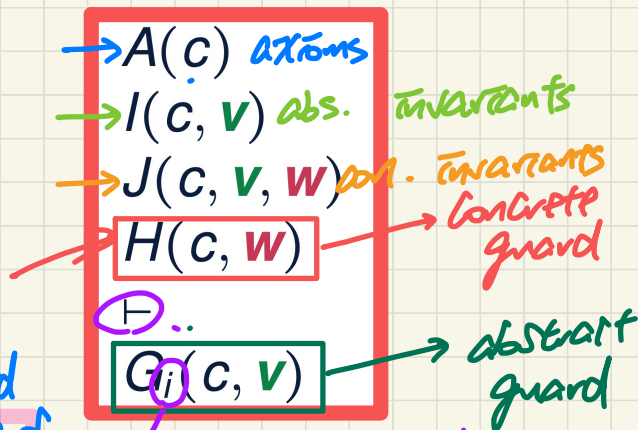 A(c) axioms
I(c, v) abs. invariants
J(c, v, w) con. invariants
H(c, w) concrete
guard
⊢
Gi(c, v) abstract
guard